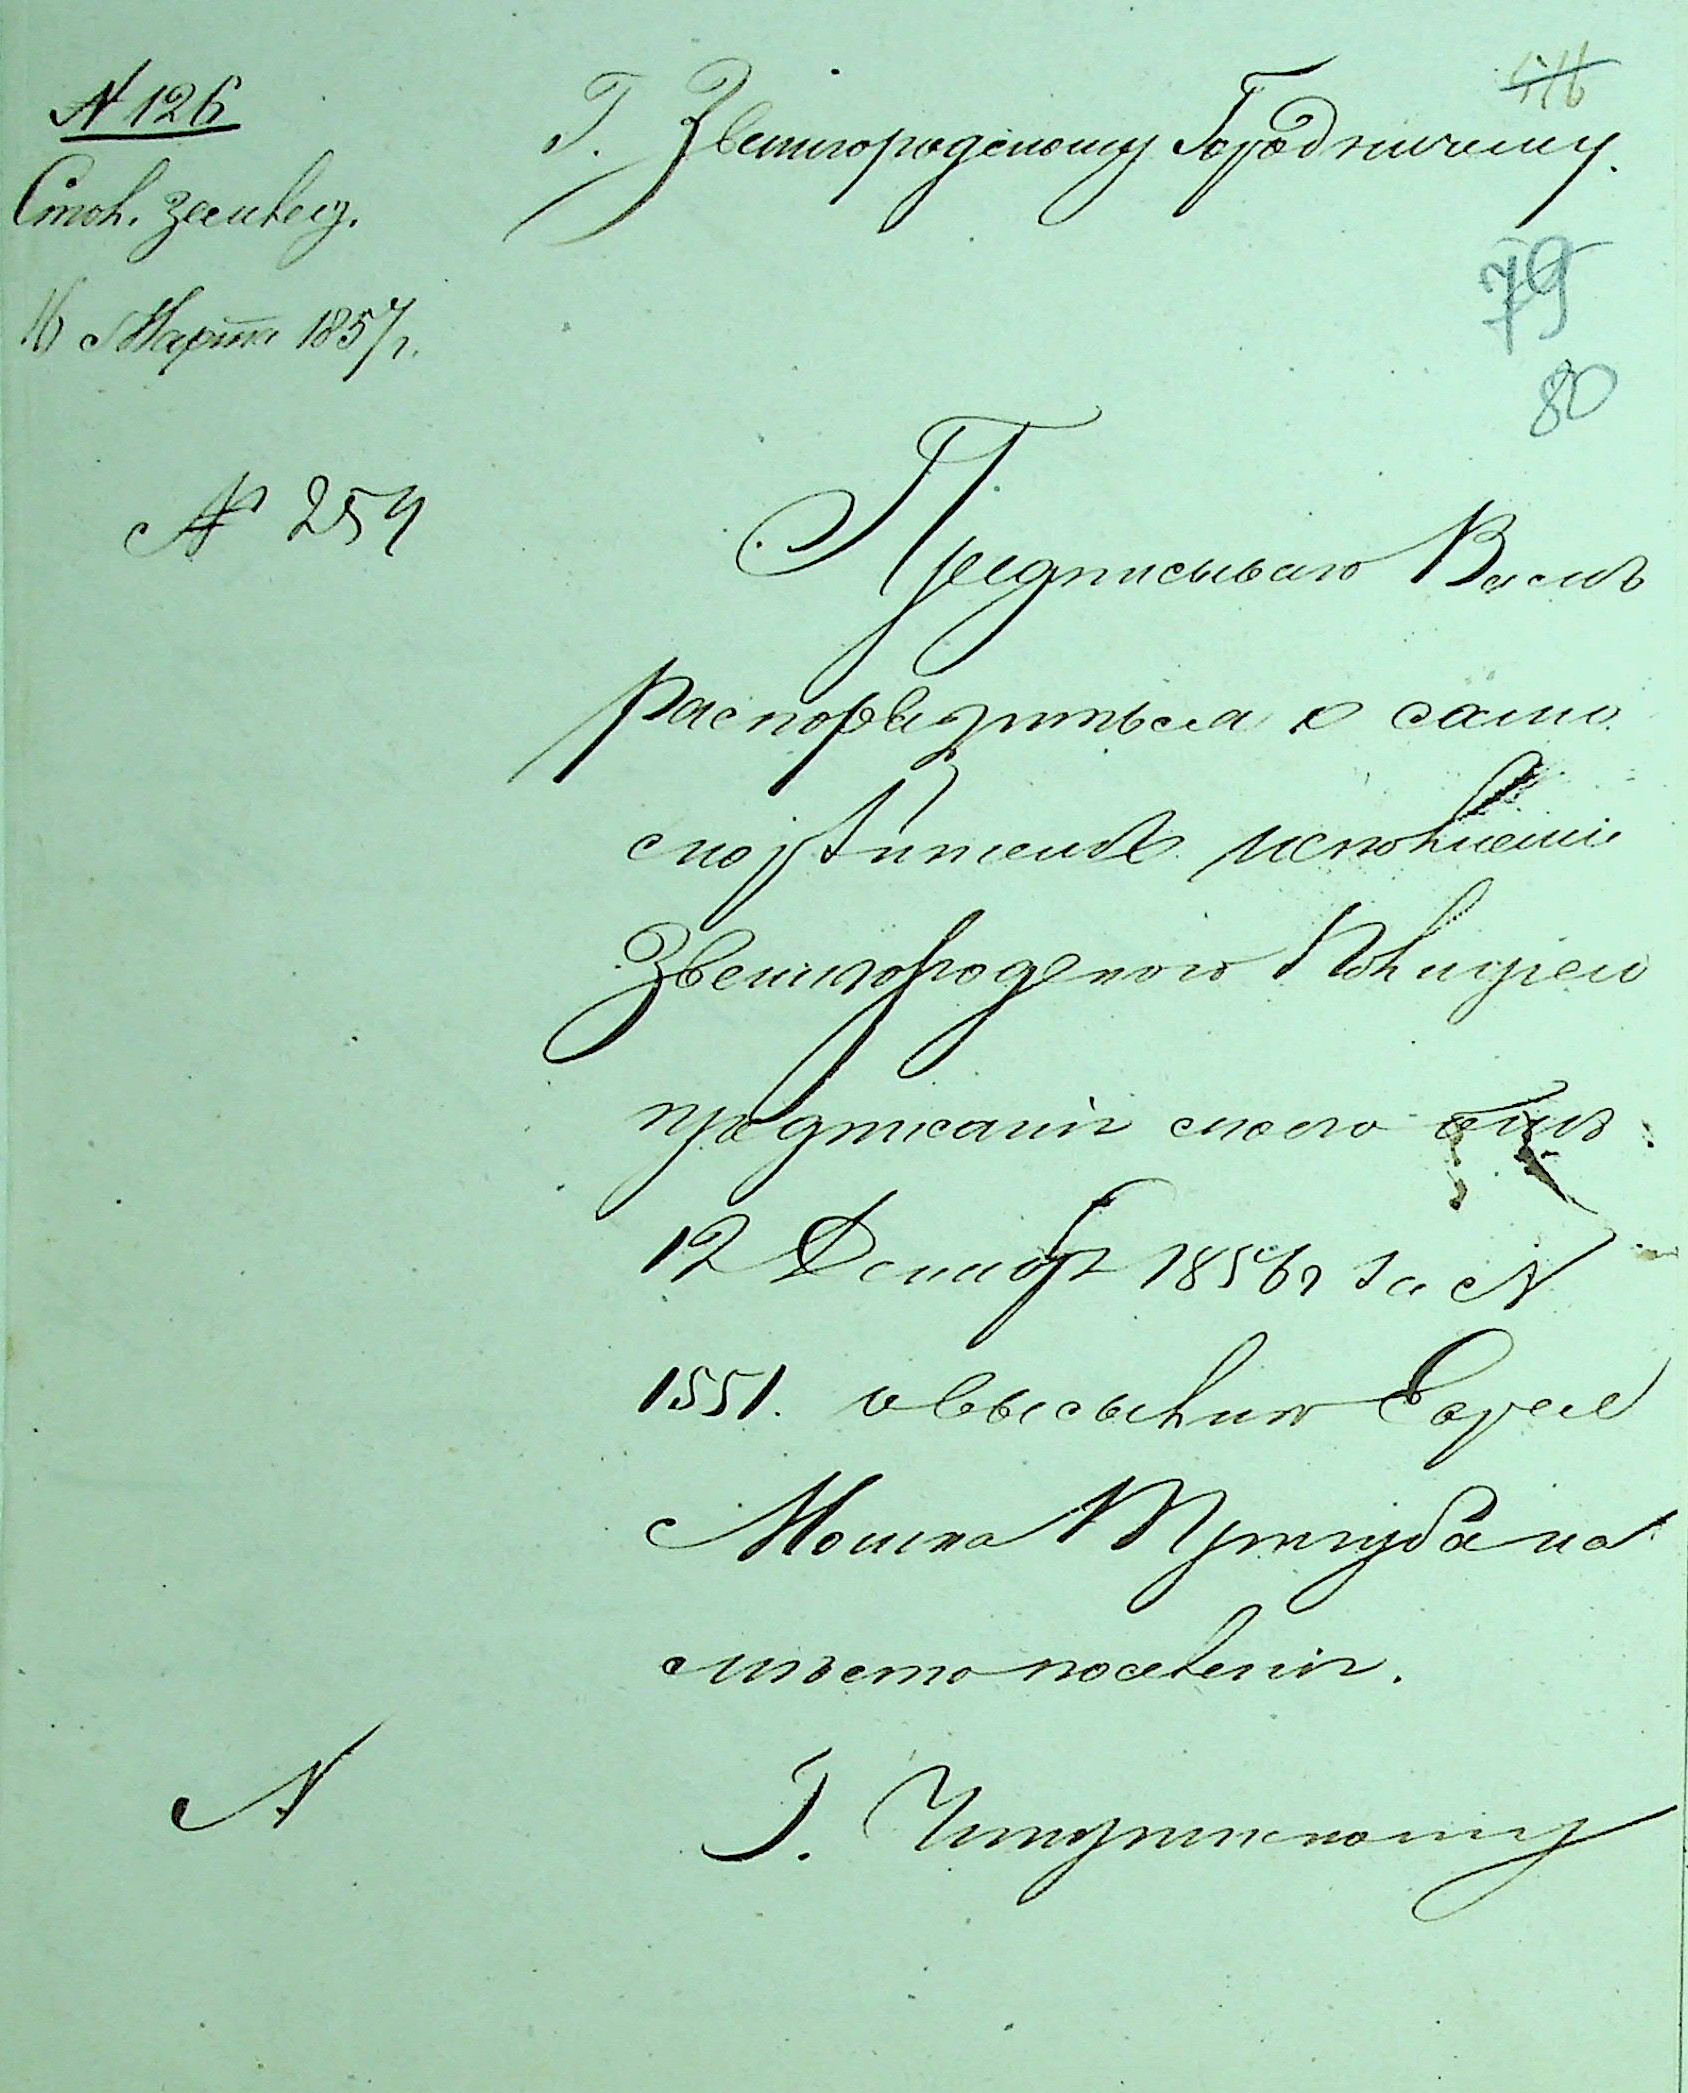 № 126
Стол. землед.
16 Марта 1857 г.
№ 254
Г. Звенигородскому Городничему.
79
80
Предписываю Вамъ
распорядиться о само
скорѣйшемъ исполненіи
Звенигородскою Полиціею
предписанія моего отъ
12 Декабря 1856 г за №
1551. о высылкѣ Еврея
Мошка на
мѣсто поселенія.
№
Г. Чигиринскому